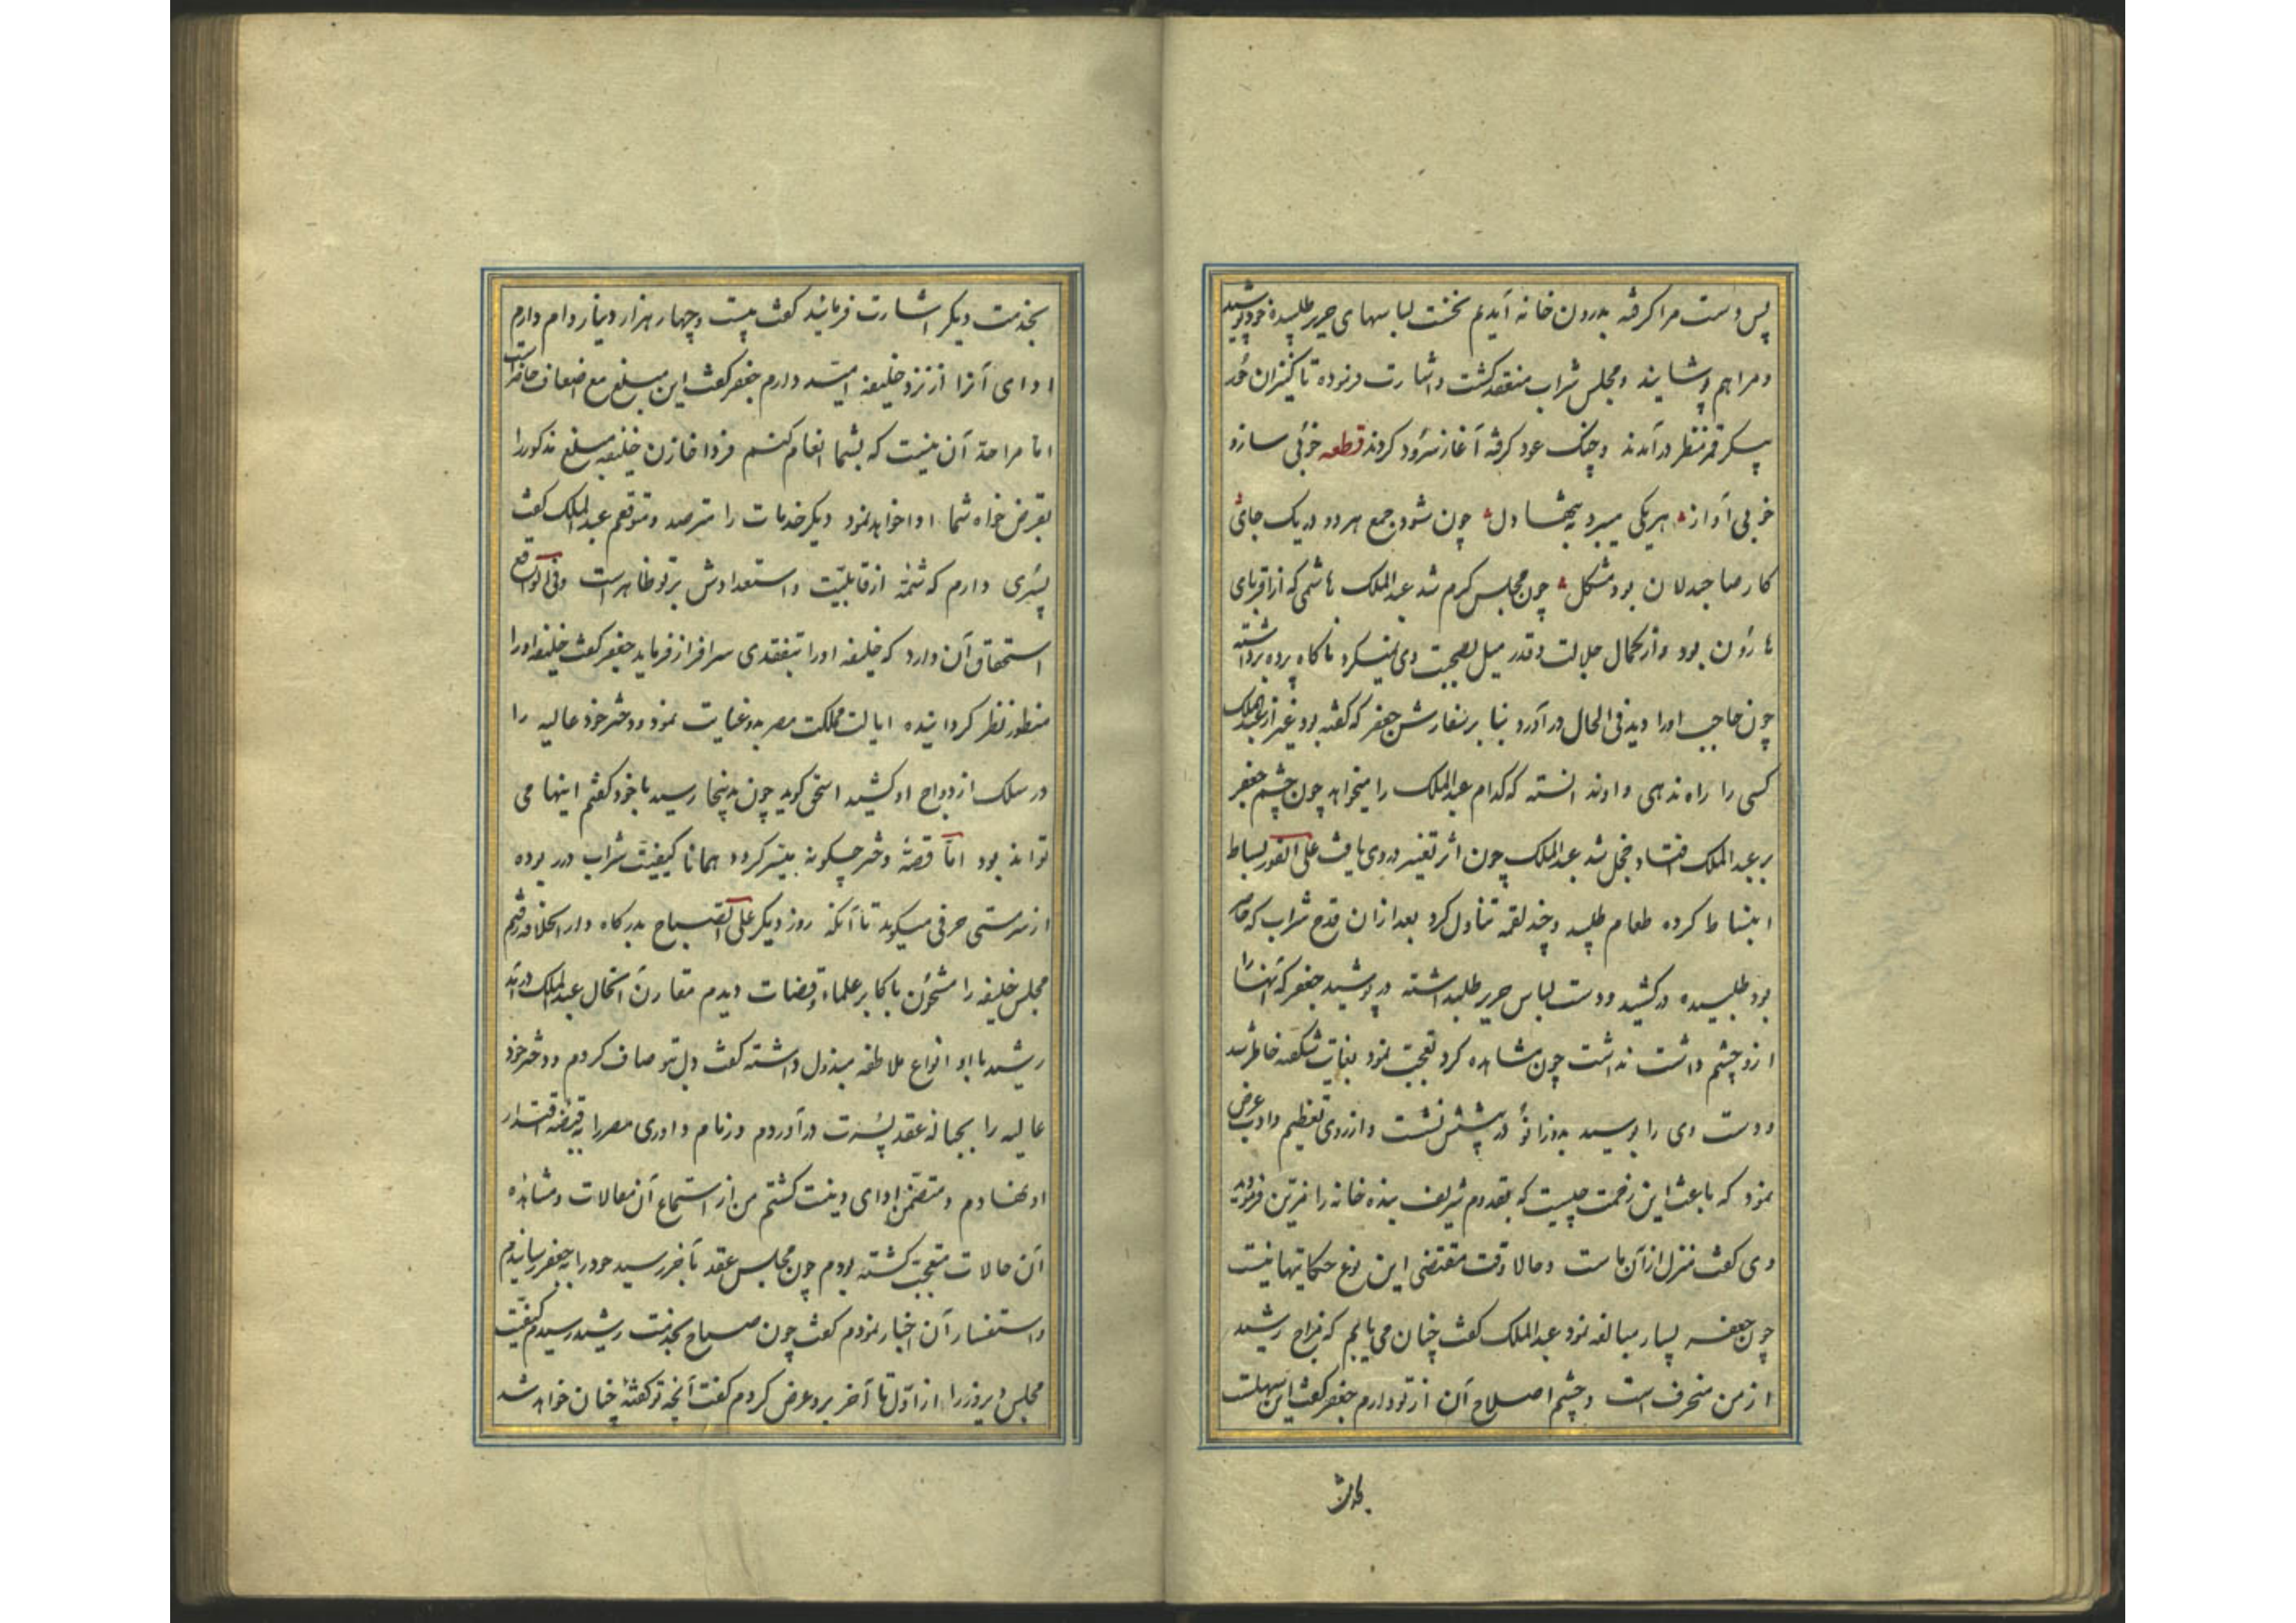 پس دست مرا گرفته بدرون خانه آمدیم نخست لباسهای حریر طلبیده خود پوشید
و مرا هم پوشانید و مجلس شراب منعقد گشت و اشارت فرموده تا کنیزان خور
پیکر قمر منظر درآمدند و چنگ عود گرفته آغاز سرود کردند قطعه خوبی سازو
خوبی آواز هر یکی میبرد به تنها دل چون شود جمع هر دو در یک جای
کار صاحبدلان بود مشکل چون مجلس گرم شد عبدالملک هاشمی که از اقربای
هارون بود و از کمال جلالت و قدر میل بصحبت وی نمیکرد ناگاه پرده برداشته
چون حاجب او را دید فی الحال درآورد بنا بر سفارش جعفر که گفته بود غیر از عبدالملک
کسی را راه ندهی و او ندانسته که کدام عبدالملک را میخواهد چون چشم جعفر
بر عبدالملک افتاد خجل شد عبدالملک چون اثر تغییر در وی یافت علی الفور بساط
انبساط کرده طعام طلبید و چند لقمه تناول کرد بعد از ان قدح شراب که
بود طلبیده درکشید و دست لباس حریر طلبداشته در پوشید جعفر که آنها را
ازو چشم داشت نداشت چون مشاهده کرد تعجب نمود بغایت شکفته خاطر شد
و دست وی را بوسید بدو زانو در پیشش نشست و از روی تعظیم و ادب عرض
نمود که باعث این زحمت چیست که بقدوم شریف بنده خانه را مزین فرموده
وی گفت منزل از آن ماست و حالا وقت مقتضی این نوع حکایتها نیست
چون جعفر بسیار مبالغه نمود عبدالملک گفت چنان می یابم که مزاج رشید
از من منحرف است و چشم اصلاح آن از تو دارم جعفر گفت این سهلست
بخدمت دیگر اشارت فرمائید گفت بیست و چهار هزار دینار وام دارم
ادای آنرا از نزد خلیفه امید دارم جعفر گفت این مبلغ مع اضعاف حاضر است
اما مرا حد آن نیست که بشما انعام کنم فردا خازن خلیفه مبلغ مذکور را
بقرض خواه شما ادا خواهد نمود دیگر خدمات را مترصد و متوقعم عبدالملک گفت
پسری دارم که شمه از قابلیت و استعدادش بر تو ظاهر است و فی الواقع
استحقاق آن دارد که خلیفه او را بتفقدی سرافراز فرماید جعفر گفت خلیفه او را
منظور نظر گردانیده ایالت مملکت مصر بدو عنایت نمود و دختر خود عالیه را
در سلک ازدواج او کشید اسحق گوید چون بدینجا رسید با خود گفتم اینها می
تواند بود اما قصه دختر چگونه میسر گردد همانا کیفیت شراب در ربوده
از سرمستی حرفی میگوید تا آنکه روز دیگر علی الصباح بدرگاه دار الخلافه رفتم
مجلس خلیفه را مشحون باکابر علماء و قضات دیدم مقارن آنحال عبدالملک درآمد
رشید با او انواع ملاطفه مبذول داشته گفت دل بتو صاف کردم و دختر خود
عالیه را بحباله عقد پسرت درآوردم و زمام داوری مصر را بقبضه اقتدار
او نهادم و متضمن ادای دینت گشتم من از استماع آن مقالات و مشاهده
آن حالات متعجب گشته بودم چون مجلس عقد بآخر رسید خود را به جعفر رسانیدم
و استفسار آن اخبار نمودم گفت چون صباح بخدمت رشید رسیدم کیفیت
مجلس دیروز را از اول تا آخر برو عرض کردم گفت آنچه تو گفتهٔ چنان خواهد شد